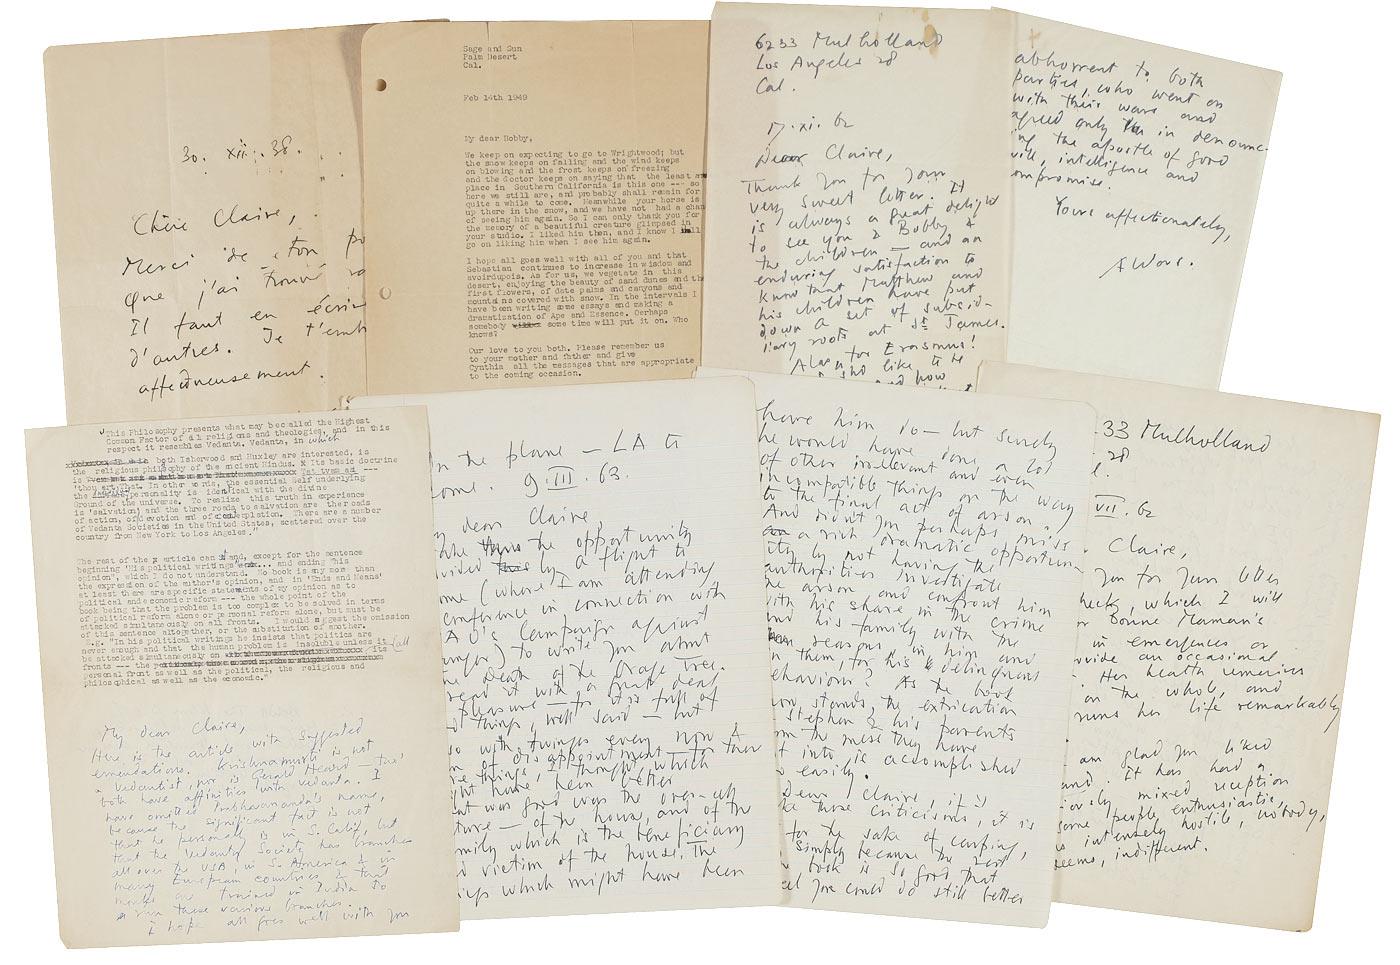 30. xii. 38.
Chère Claire,
Merci de ton
que j'ai trouvé
Il faut en
d'autres. Je
affectueusement.
Sage and Sun
Palm Desert
Cal.
Feb 14th 1949
My dear Bobby,
We keep on expecting to go to Wrightwood; but
the snow keeps on falling and the wind keeps
on blowing and the frost keeps on freezing
and the doctor keeps on saying that the least
place in Southern California is this one --- so
here we still are, and probably shall remain for
quite a while to come. Meanwhile your horse is
up there in the snow, and we have not had a
of seeing him again. So I can only thank you for
the memory of a beautiful creature glimpsed in
your studio. I liked him then, and I know I
go on liking him when I see him again.
I hope all goes well with all of you and that
Sebastian continues to increase in wisdom and
avoirdupois. As for us, we vegetate in this
desert, enjoying the beauty of sand dunes and
first flowers, of date palms and canyons and
mountains covered with snow. In the intervals I
have been writing some essays and making a
dramatization of Ape and Essence. Perhaps
somebody some time will put it on. Who
knows?
Our love to you both. Please remember us
to your mother and father and give
Cynthia all the messages that are appropriate
to the coming occasion.
6233 Mulholland
Los Angeles 28
Cal.
xi. 62
Dear Claire,
Thank you for your
very sweet letter. It
is always a great delight
to see you & Bobby &
the children — and an
enduring satisfaction to
know that Matthew and
his children have put
down a set of subsid-
iary roots at St James.
Alas, for Erasmus!
abhorrent to both
parties, who went on
with their wars and
agreed only in denounc-
ing the apostle of good
will, intelligence and
compromise.
Yours affectionately,
Aldous.
This Philosophy presents what may be called the Highest
Common Factor of all religions and theologies, and in this
respect it resembles Vedanta. Vedanta, in which
both Isherwood and Huxley are interested, is
the religious philosophy of the ancient Hindus. Its basic doctrine
is Tat tvam asi ---
'thou art That. In other words, the essential Self underlying
the personality is identical with the divine
Ground of the universe. To realize this truth in experience
is 'salvation' and the three roads to salvation are the roads
of action, of devotion and of contemplation. There are a number
of Vedanta Societies in the United States, scattered over the
country from New York to Los Angeles."
The rest of the article can stand, except for the sentence
beginning "His political writings ... and ending "his
opinion", which I do not understand. No book is any more than
the expression of the author's opinion, and in 'Ends and Means'
at least there are specific statements of my opinion as to
political and economic reform --- the whole point of the
book being that the problem is too complex to be solved in terms
of political reform alone or personal reform alone, but must be
attacked simultaneously on all fronts. I would suggest the omission
of this sentence altogether, or the substitution of another.
e.g. "In his political writings he insists that politics are
never enough and that the human problem is insoluble unless it
be attacked simultaneously on all its
fronts --- the
personal front as well as the political, the religious and
philosophical as well as the economic."
My dear Claire,
Here is the article with suggested
emendations. Krishnamurti is not
a Vedantist, nor is Gerald Heard — tho'
both have affinities with Vedanta. I
have omitted Prabhavananda's name,
because the significant fact is not
that he personally is in S. Calif, but
that the Vedanta Society has branches
all over the USA, in S. America & in
many European countries & that
monks are trained in India to
run these various branches.
I hope all goes well with you
In the plane — LA to
Rome. 9. III. 63.
dear Claire,
take the opportunity
by a flight to
(where I am attending
conference in connection with
AO's Campaign against
to write you about
the Death of the Grape Tree.
read it with a great deal
pleasure — for it is full of
things, well said — but
with twinges every now &
of disappointment — for there
things, I thought, which
might have been better
was good was the over-all
of the house, and of the
family which is the beneficiary
victim of the house. The
which might have been
have him do — but surely
he would have done a lot
of other irrelevant and even
incompatible things on the way
to the final act of arson.
And didn't you perhaps miss
a rich dramatic opportun-
ity by not having the
authorities investigate
the arson and confront him
with his share in the crime
and his family with the
reasons in him and
in them, for his delinquent
behaviour? As the book
now stands, the extrication
Stephen & his parents
from the mess they have
got into is accomplished
easily.
Dear Claire, if I
make these criticisms, it is
for the sake of carping,
simply because the rest
book is so good that
feel you could do still better
33 Mulholland
28
VII. 62
Claire,
you for your letter
which I will
Bonne Maman's
in emergences or
provide an occasional
Her health remains
on the whole, and
runs her life remarkably
am glad you liked
It has had a
mixed reception
some people enthusiastic,
intensely hostile, nobody,
seems, indifferent.